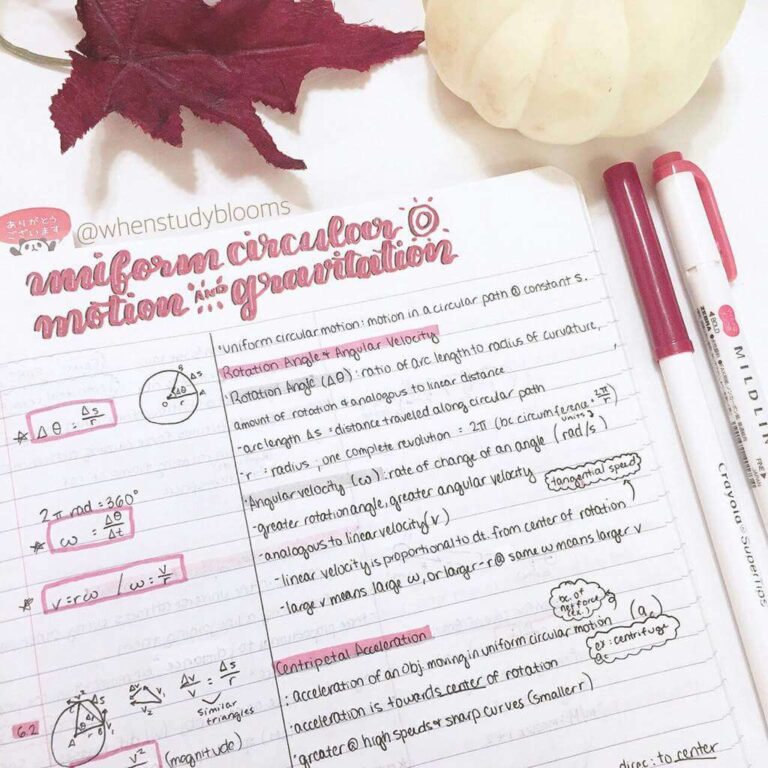 ありがとう
ございます
@whenstudyblooms
uniform circular
motion AND gravitation
• Uniform circular motion: motion in a circular path @ constant s.
Rotation Angle & Angular Velocity
• Rotation Angle (Δθ): ratio of arc length to radius of curvature,
amount of rotation & analogous to linear distance
- arc length Δs = distance traveled along circular path
- r = radius, one complete revolution = 2π (bc circumference = 2π/r)
units
• Angular velocity (ω): rate of change of an angle (rad/s)
- greater rotation angle, greater angular velocity
tangential speed
- analogous to linear velocity (v)
- linear velocity is proportional to dt. from center of rotation
- large v means large ω, or larger r @ same ω means larger v
Centripetal Acceleration
bc of
net force
(ex.)
: acceleration of an obj. moving in uniform circular motion (ac)
ex: centrifuge
- acceleration is towards center of rotation
• greater @ high speeds & sharp curves (smaller r)
direc: to center
B
Δs
Δθ
A
O
r
Δθ = Δs/r
2π rad = 360°
ω = Δθ/Δt
v = rω / ω = v/r
Δv/v = Δs/r
similar
triangles
6.2
v²
(magnitude)
4 BOLD
ZEBRA
MILDLIN
FINE
Crayola SuperTips